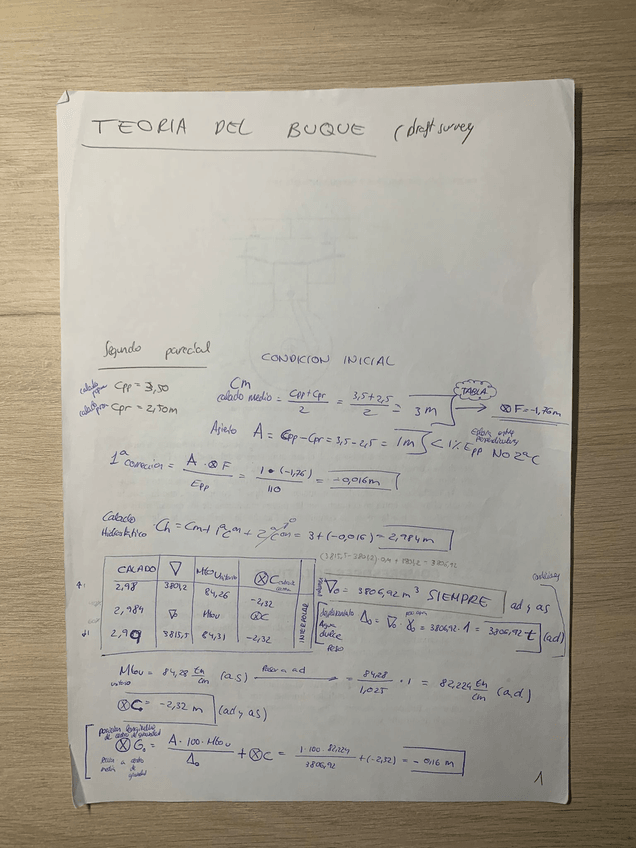 TEORIA DEL BUQUE (draft survey
Segundo parecial
CONDICION INICIAL
calado popa Cpp = 3,50
calado proa Cpr = 2,50m
Cm
calado medio = (Cpp + Cpr)/2 = (3,5 + 2,5)/2 = 3 m
TABLA → ⊗F = -1,76 m
Asiento A = Cpp - Cpr = 3,5 - 2,5 = 1m < 1% Epp No 2ª C
Eslora entre perpendiculares
1ª correcion = (A · ⊗F)/Epp = (1 · (-1,76))/110 = -0,016 m
Calado
Hidrostático Ch = Cm + 1ª Con + 2ª Con = 3 + (-0,016) = 2,984 m
CALADO ∇ Mtou unitario ⊗C
2,98 3801,2 84,26 -2,32
2,984 ∇o Mtou ⊗C
2,99 3815,5 84,31 -2,32
INTERPOLAR
∇o = 3806,92 m³ SIEMPRE ad y as
desplazamiento Δo = ∇o · γo = 3806,92 · 1 = 3806,92 t (ad)
Agua
dulce
PESO
Mtou = 84,28 tm/cm (as) Pasar a ad → 84,28/1,025 · 1 = 82,224 tm/cm (ad)
⊗C = -2,32 m (ad y as)
posicion longitudinal de centro de gravedad
⊗Go = (A · 100 · Mtou)/Δo + ⊗C = (1 · 100 · 82,224)/3806,92 + (-2,32) = -0,16 m
1